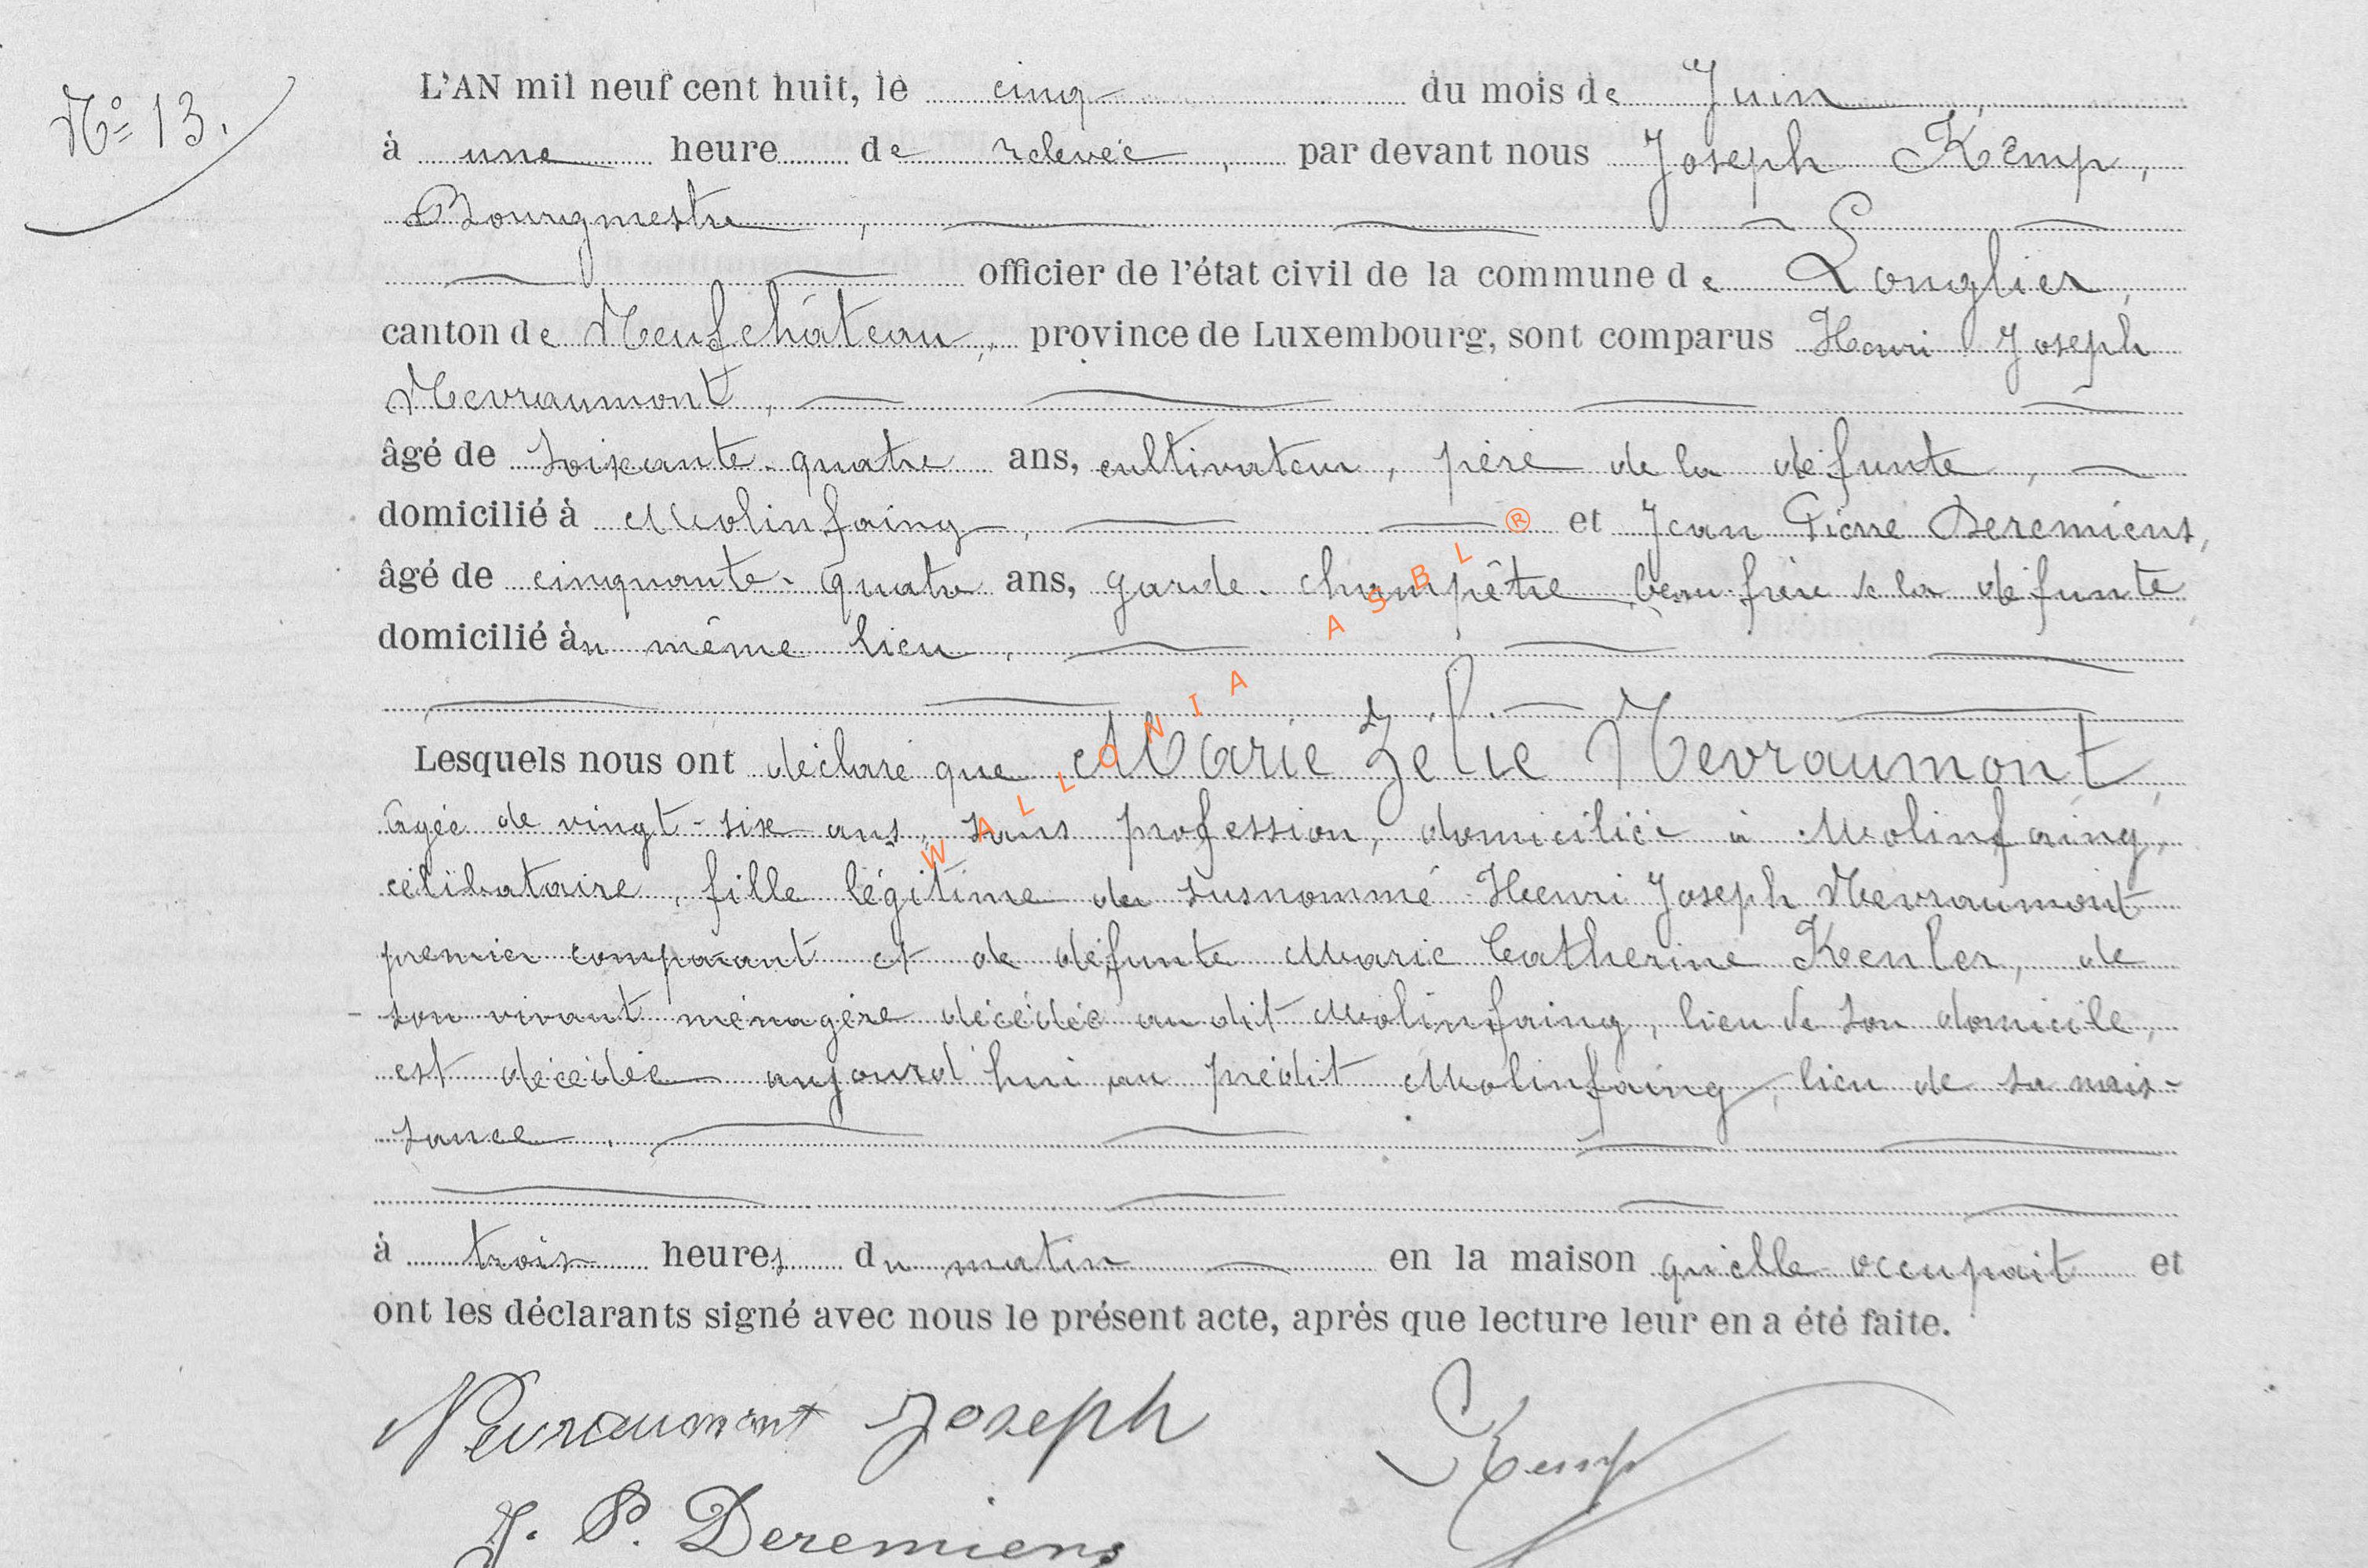 N° 13.
L'AN mil neuf cent huit, le cinq du mois de Juin,
à une heure de relevée, par devant nous Joseph Kemp,
Bourgmestre,
officier de l'état civil de la commune de Longlier,
canton de Neufchâteau, province de Luxembourg, sont comparus Henri Joseph
Nevraumont,
âgé de soixante-quatre ans, cultivateur, père de la défunte,
domicilié à Molinfaing, et Jean Pierre Deremiens,
âgé de cinquante-quatre ans, garde-champêtre beau-frère de la défunte,
domicilié au même lieu,
Lesquels nous ont déclaré que Marie Zélie Nevraumont,
âgée de vingt-six ans, sans profession, domiciliée à Molinfaing,
célibataire, fille légitime du susnommé Henri Joseph Nevraumont
premier comparant et de défunte Marie Catherine Kenler, de
son vivant ménagère décédée au dit Molinfaing, lieu de son domicile,
est décédée aujourd'hui au prédit Molinfaing, lieu de sa nais-
sance.
à trois heures du matin en la maison qu'elle occupait et
ont les déclarants signé avec nous le présent acte, après que lecture leur en a été faite.
Nevraumont Joseph
Kemp
J. P. Deremiens
WALLONIA ASBL ®